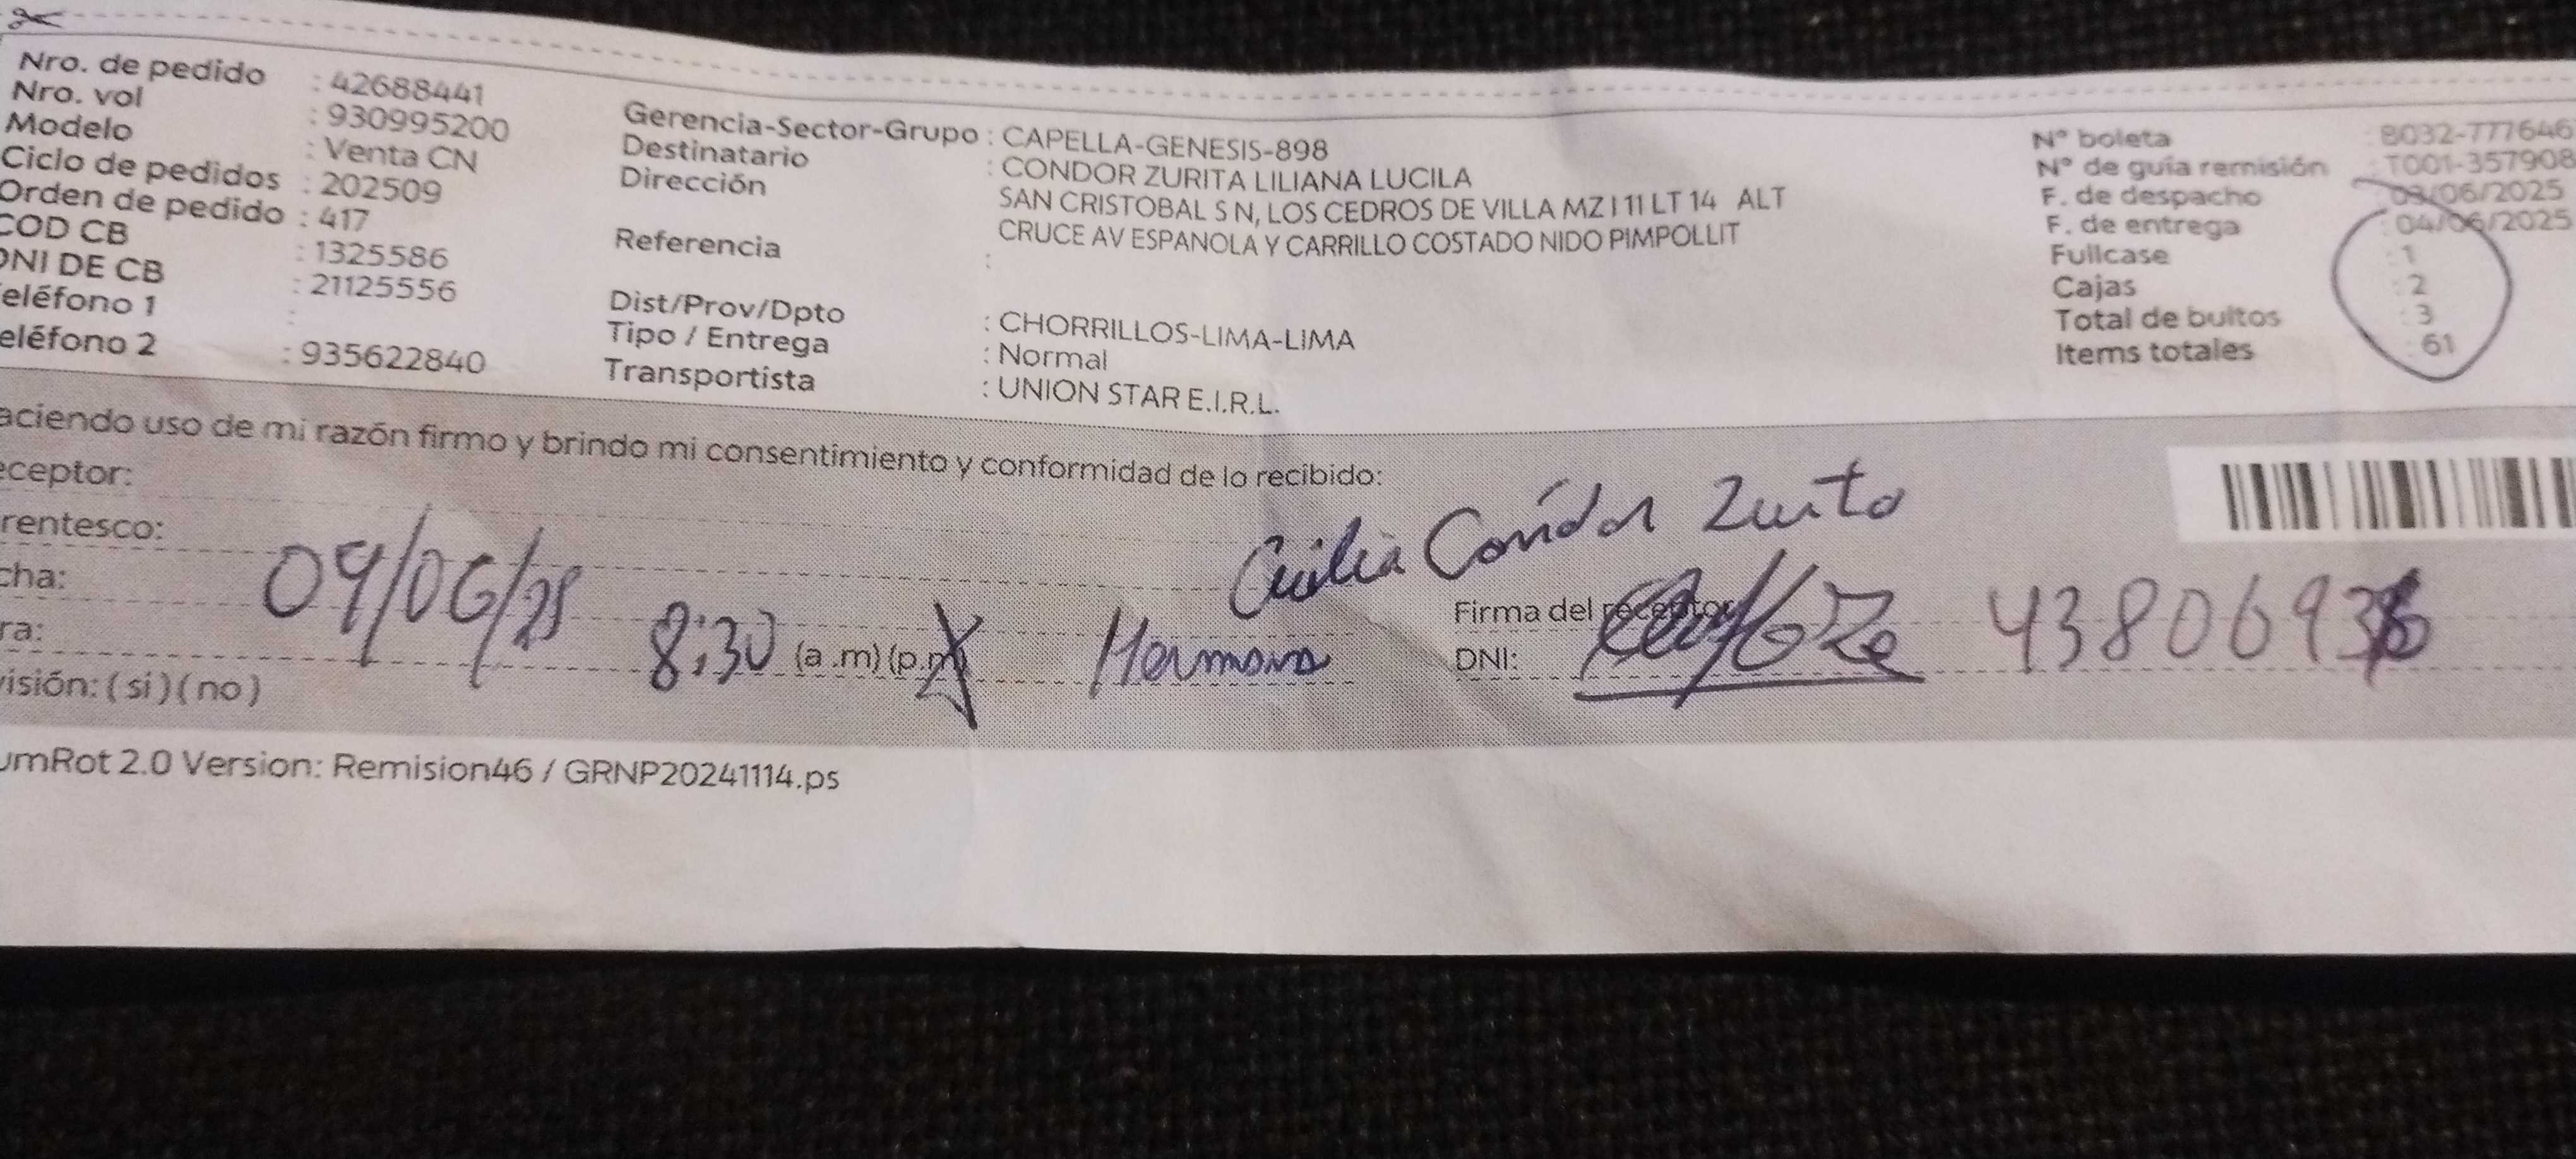 Nro. de pedido : 42688441
Nro. vol : 930995200
Modelo : Venta CN
Ciclo de pedidos : 202509
Orden de pedido : 417
COD CB : 1325586
DNI DE CB : 21125556
eléfono 1 :
eléfono 2 : 935622840
Gerencia-Sector-Grupo : CAPELLA-GENESIS-898
Destinatario : CONDOR ZURITA LILIANA LUCILA
Dirección SAN CRISTOBAL S N, LOS CEDROS DE VILLA MZ I 11 LT 14 ALT
CRUCE AV ESPANOLA Y CARRILLO COSTADO NIDO PIMPOLLIT
Referencia :
Dist/Prov/Dpto : CHORRILLOS-LIMA-LIMA
Tipo / Entrega : Normal
Transportista : UNION STAR E.I.R.L.
N° boleta : 8032-777646
N° de guía remisión : T001-357908
F. de despacho : 03/06/2025
F. de entrega : 04/06/2025
Fullcase : 1
Cajas : 2
Total de bultos : 3
Items totales : 61
aciendo uso de mi razón firmo y brindo mi consentimiento y conformidad de lo recibido:
eceptor: Condor Zurita
rentesco:
cha: 04/06/25
ra: 8:30 (a .m) (p.m) Hermana
visión: ( si ) ( no )
Firma del receptor
DNI: 438069
umRot 2.0 Version: Remision46 / GRNP20241114.ps